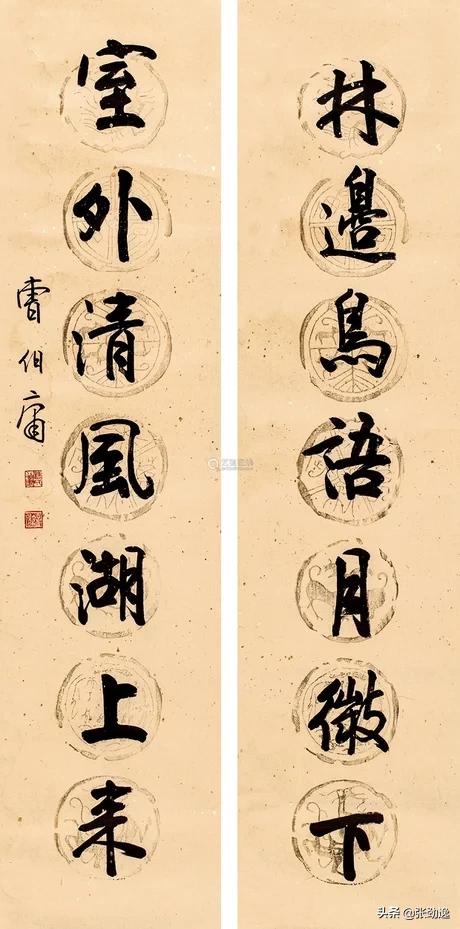 林邊鳥語月微下
室外清風湖上来
曹伯庸
头条 @张劲逸